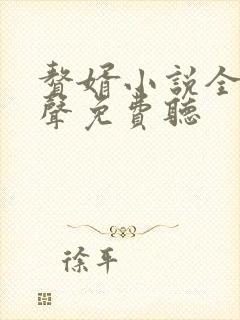 贅婿小說全
聲免費聽
徐平